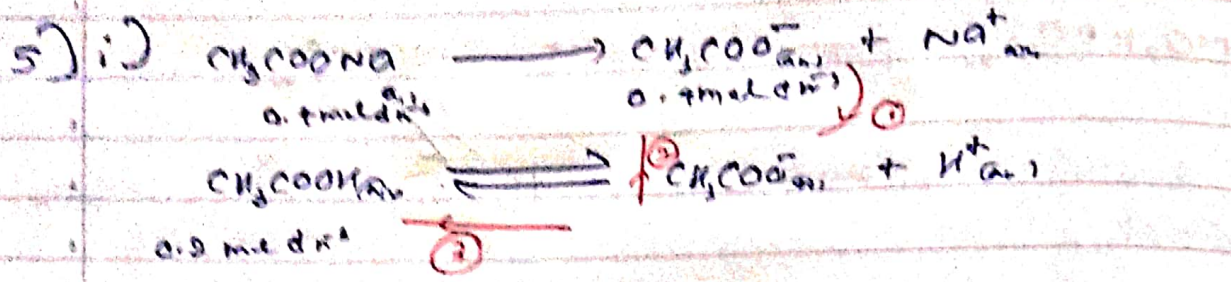 5) i) CH₃COONa ⟶ CH₃COO⁻(aq) + Na⁺(aq)
0.4 mol dm⁻³ 0.4 mol dm⁻³ ①
CH₃COOH(aq) ⇌ CH₃COO⁻(aq) + H⁺(aq)
mol dm⁻³